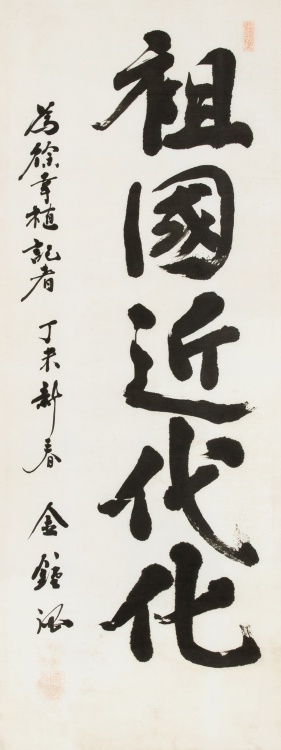 祖國近代化
為徐幸植記者 丁未新春 金鍾泌